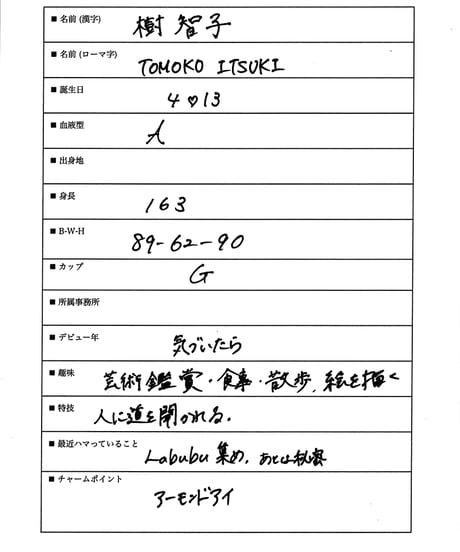 ■ 名前 (漢字)
樹 智子
■ 名前 (ローマ字)
TOMOKO ITSUKI
■ 誕生日
4♡13
■ 血液型
A
■ 出身地
■ 身長
163
■ B-W-H
89-62-90
■ カップ
G
■ 所属事務所
■ デビュー年
気づいたら
■ 趣味
芸術鑑賞・食事・散歩、絵を描く
■ 特技
人に道を聞かれる。
■ 最近ハマっていること
Labubu 集め、あとは
■ チャームポイント
アーモンドアイ